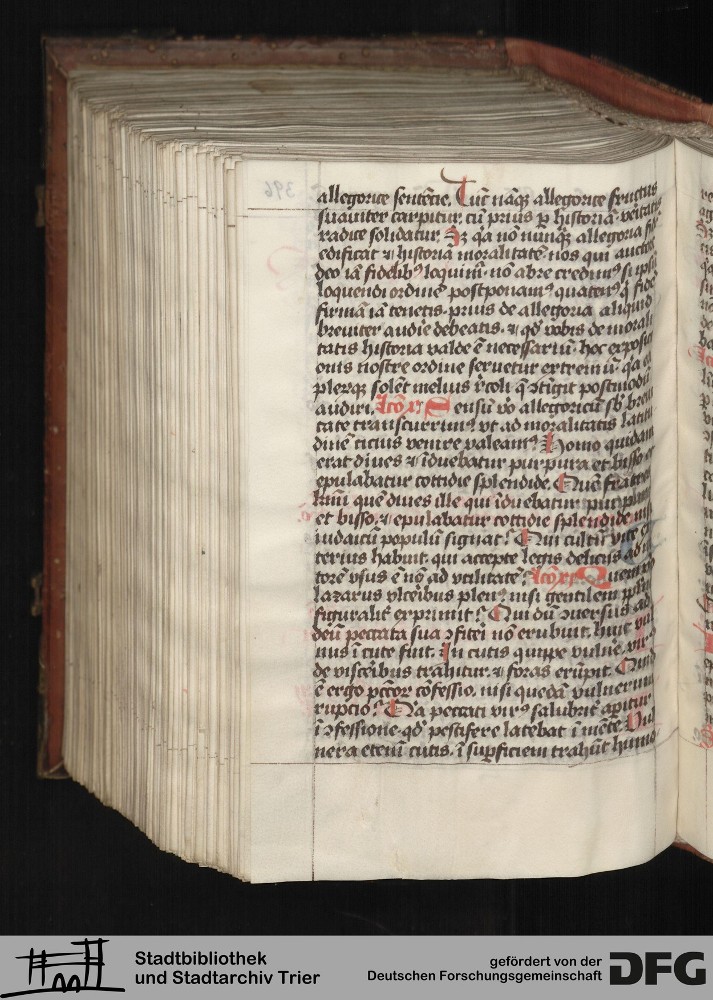 allegorice sentētie. Tūc nāq; allegorice fructus
suauiter carpitur. cū prius p historiā veritatis
radice solidatur. Sz q̄a nō nunq̄; allegoria fidē
edificat ⁊ historia moralitatē. nos qui auctore
deo iā fidelib⁹ loquimᷣ. nō abre credim⁹ si ipsū
loquendi ordinē postponam⁹ quaten⁹ q̄ fidē
firmā iā tenetis. prius de allegoria aliquid
breuiter audire debeatis. ⁊ qd̄ vobis de morali
tatis historia valde ē necessariū. hoc exposici
onis nostre ordine seruetur extremū. q̄a
plerūq; solēt melius recoli q̄ ɔtigit postmodū
audiri. Lcō Sensū v̄o allegoricū sb̄ breui
tate transcurrim⁹ vt ad moralitatis latitu
dinē citius venire valeam⁹. Homo quidam
erat diues ⁊ īduebatur purpura et bisso et
epulabatur cottidie splendide. Quē fratres
kmi quē diues ille qui īduebatur purpura
et bisso. ⁊ epulabatur cottidie splendide nisi
iudaicū populū signat? Qui cultū vite ex
terius habuit. qui accepte legis delicijs ad ni
torē vsus ē nō ad vtilitatē. Lcō Quem v̄o
lazarus vlceribus plen⁹ nisi gentilem plm̄
figuralit̄ exprimit? Qui dū ɔuersus ad
deū peccata sua ɔfiteri nō erubuit. huic vul
nus ī cute fuit. In cutis quippe vulnē. vir⁹
de visceribus trahitur. ⁊ foras erūpit. Quid
ē ergo pctōr confessio. nisi quedā vulnerum
rupcio? Q̄a peccati vir⁹ salubrit̄ aperitur
ī ɔfessione. qd̄ pestifere latebat ī mēte. Vul
nera etenī cutis. ī supficiem trahūt humo
396
Stadtbibliothek
und Stadtarchiv Trier
gefördert von der
Deutschen Forschungsgemeinschaft
DFG